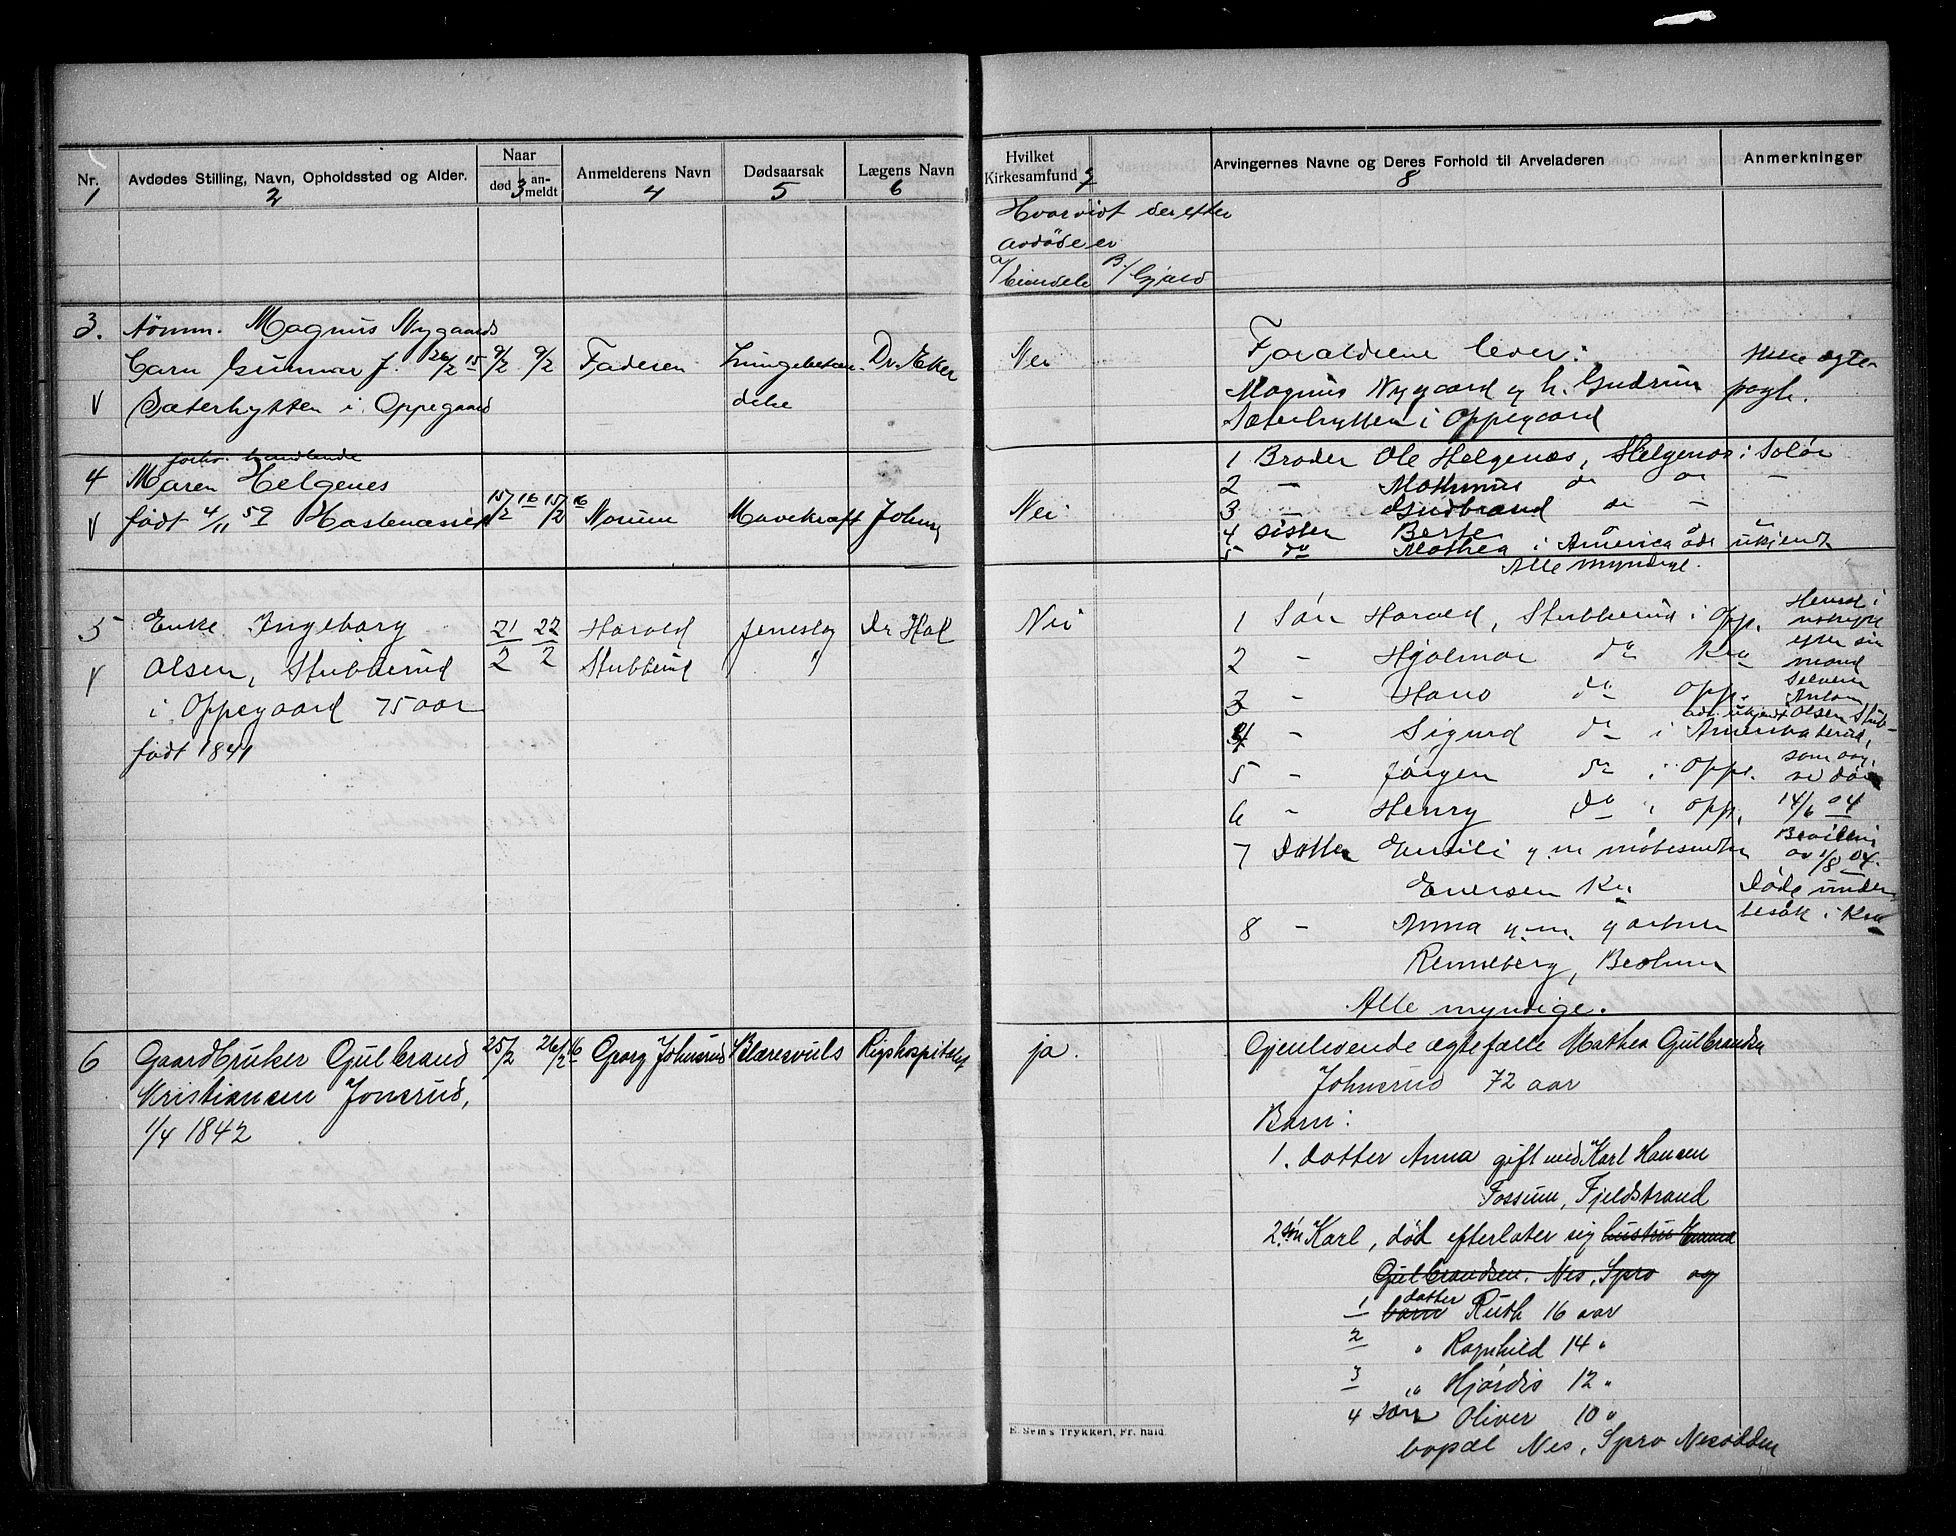 Nr. Avdødes Stilling, Navn, Opholdssted og Alder. Naar død anmeldt Anmelderens Navn Dødsaarsak Lægens Navn Hvilket Kirkesamfund Arvingernes Navne og Deres Forhold til Arveladeren Anmerkninger
1 2 3 4 5 6 7 8
Hvorvidt der efter
avdøde er
a/ Eiendele B/ Gjæld
3. tømm. Magnus Nygaards
barn Gunnar f. 26/2 15 9/2 9/2 Faderen Lungebetæn- Dr. Eker Nei
V Sæterhytten i Oppegaard delse
Forældrene lever:
Magnus Nygaard og h. Gudrun
Sæterhytten i Oppegaard
Ikke egte
pagt.
4 forhv. handlende
Maren Helgenes
V født 4/11 59 15/2 16 15/2 16 Norum Mavekræft Nei
1 Broder Ole Helgenæs, Helgenæs i Solør
2 - Mathinus do do -
3 - Gudbrand do -
4 søster Berte
5 do Mathea i America adr ukjendt
Alle myndige.
5 Enke Ingeborg 21/2 22/2 Harald Dr Hal Nei
V Olsen, Stubberud Stubberud
i Oppegaard 75 aar
født 1841
1 Søn Harald, Stubberud i Opp.
2 - Hjalmar do Kra
3 - Hans do Opp.
4 - Sigurd do i Amerika
adr. ukjendt
5 - Jørgen do i Opp.
6 - Henry do i Opp.
7 Datter Emili g.m. møbelsnedker
Eversen Kra
8 - Anna g.m. gartner
Renneberg, Bærum
Alle myndige.
Hensd i
uskiftet
efter sin
mand
Selveier
Anton
Olsen Stub-
berud,
som og
døde
14/6 04
Bevilling
av 1/8 04.
Døde under
besøk i Kra
6 Gaardbruker Gulbrand 25/2 26/2 16 Georg Johnsrud Blæresvuls Rigshospitalet ja.
Kristiansen Jonsrud,
1/4 1842
Gjenlevende ægtefælle Mathea Gulbrandsen
Johnsrud 72 aar
Barn:
1. datter Anna gift med Karl Hansen
Fossum, Fjeldstrand
2. søn Karl, død efterlater sig hustru Emma
Gulbrandsen. Nes, Spro og
1 barn datter Ruth 16 aar
2 " Ragnhild 14 "
3 " Hjørdis 12 "
4 søn Oliver 10 "
bopæl Nes, Spro Nesodden
E. Sem's Trykkeri, Fr.hald